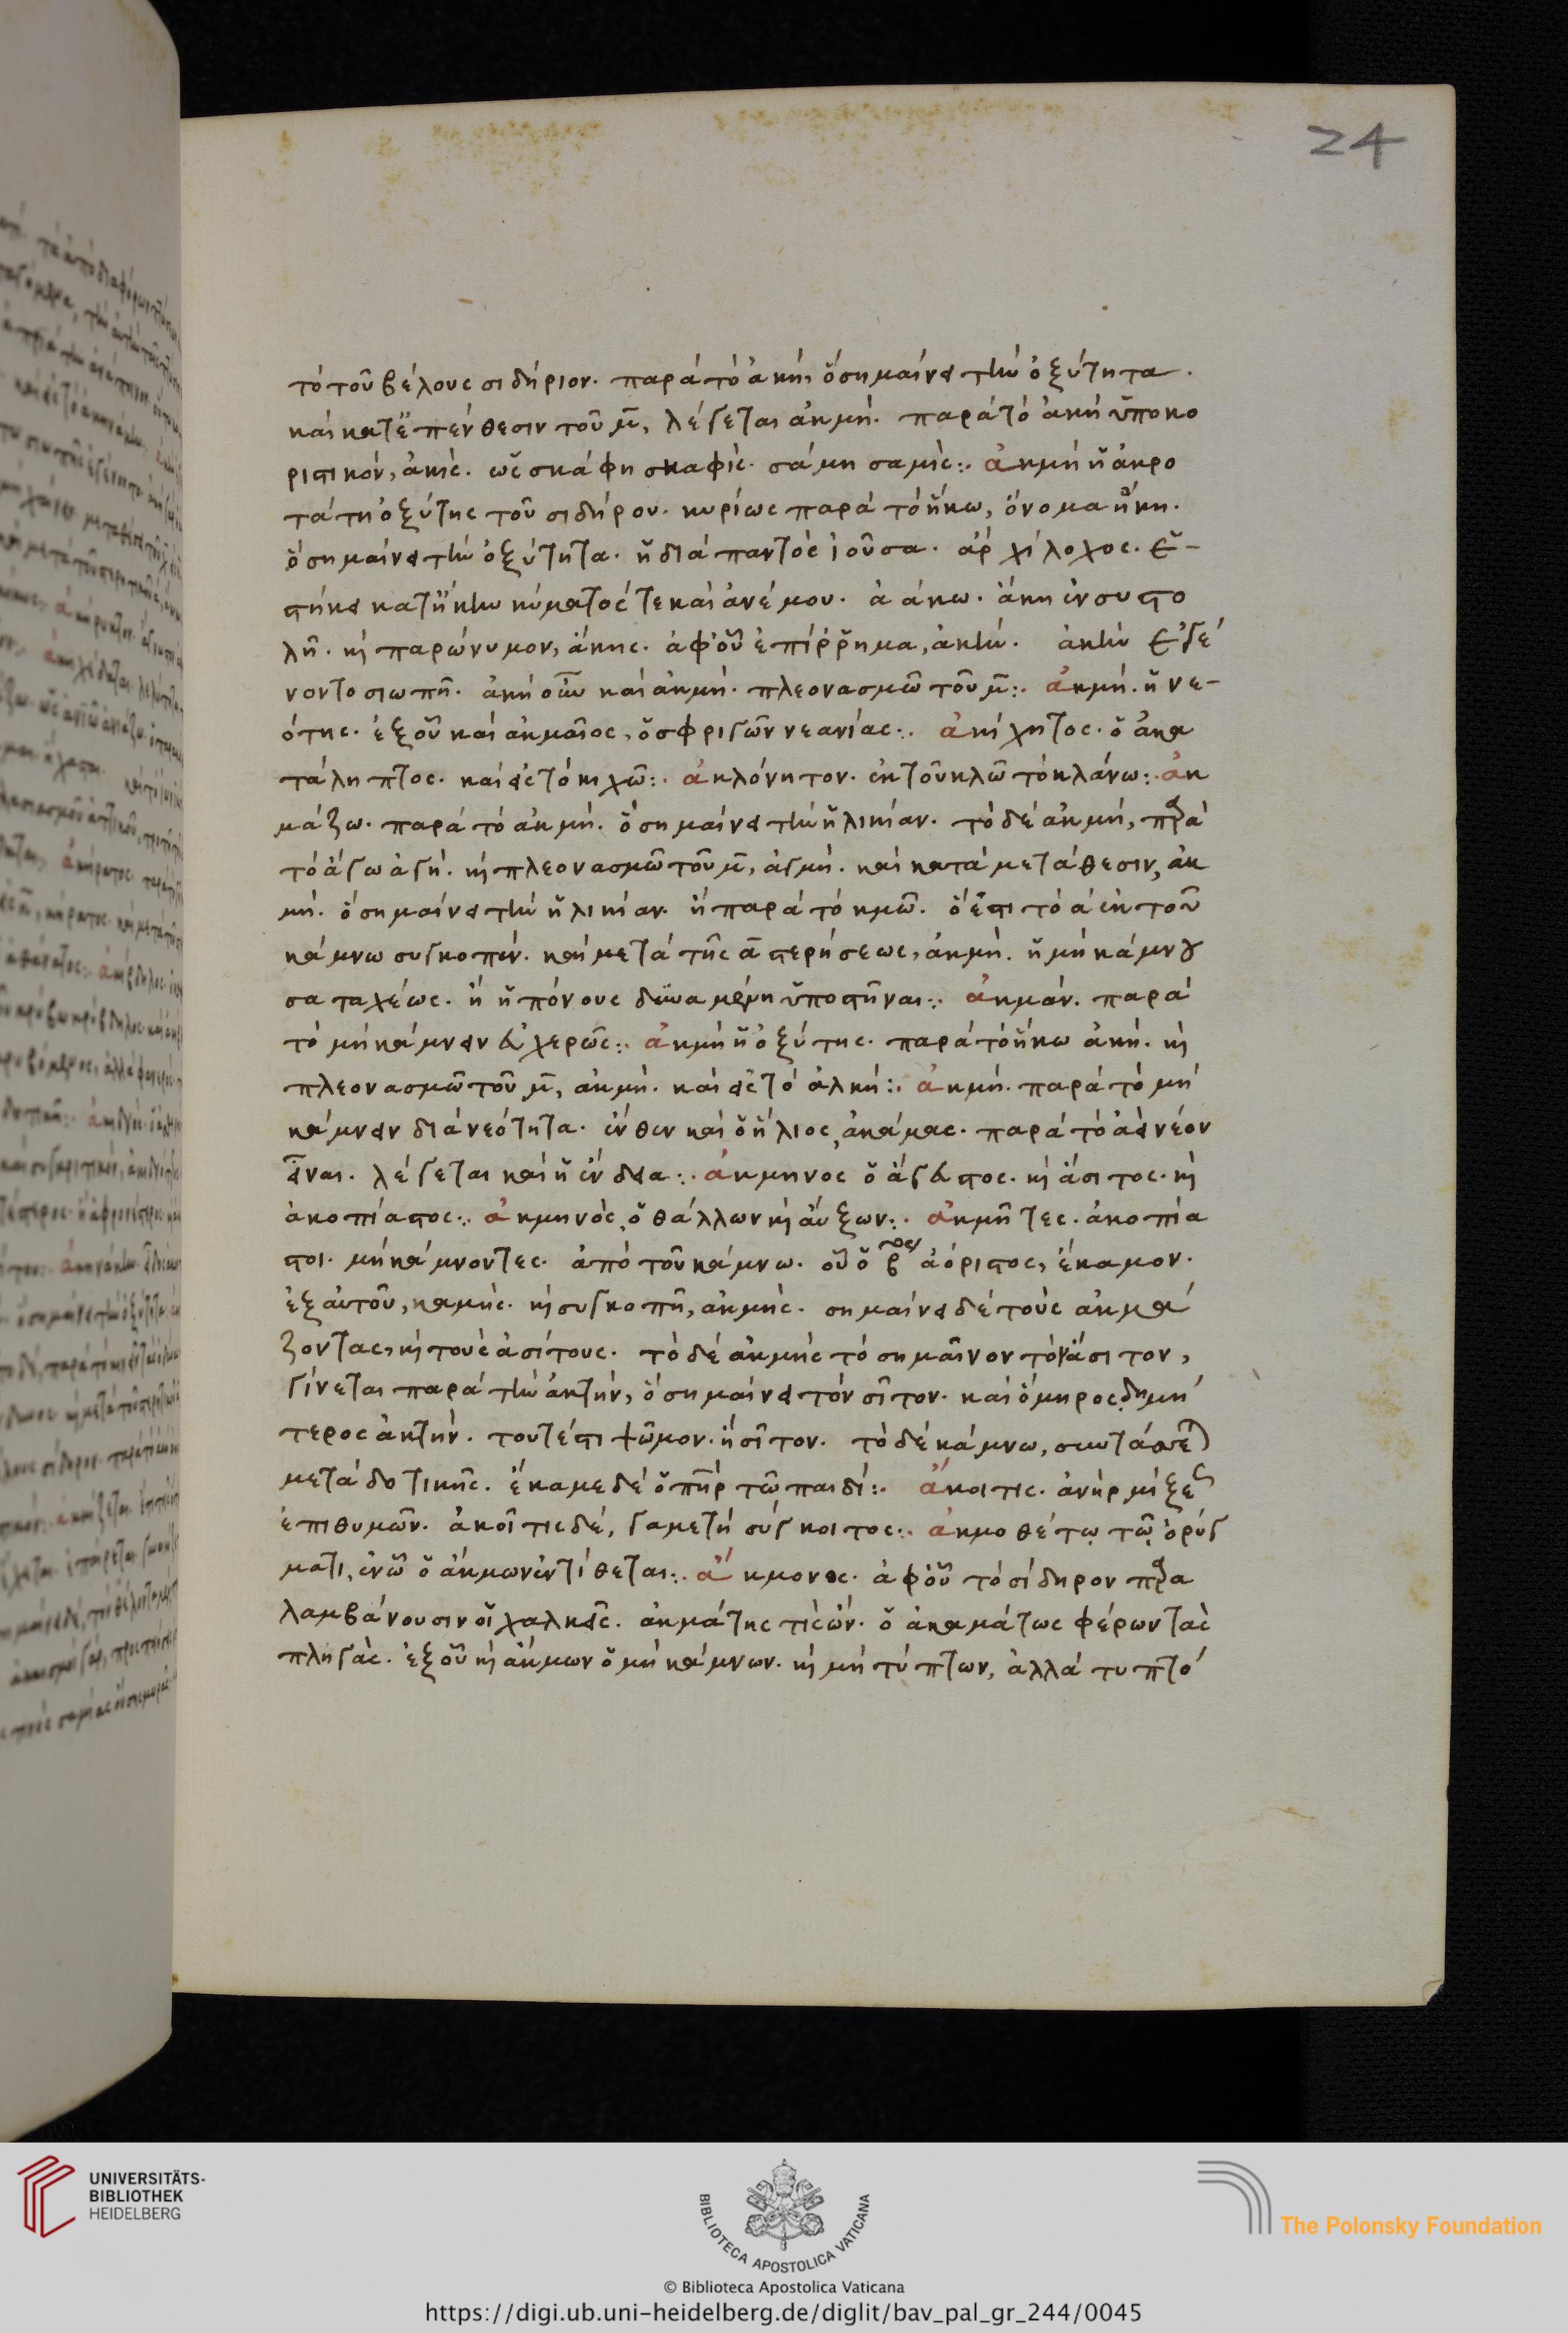 24
τὸ τοῦ βέλους σιδήριον. παρὰ τὸ ἀκή, ὃ σημαίνει τὴν ὀξύτητα.
καὶ κατ' ἐπένθεσιν τοῦ μ̄, λέγεται ἀκμή. παρὰ τὸ ἀκὴ ὑποκο
ριστικόν, ἀκίς. ὡς σκάφη σκαφίς. σάμη σαμίς:. ἀκμὴ ἡ ἀκρο
τάτη ὀξύτης τοῦ σιδήρου. κυρίως παρὰ τὸ ἥκω, ὄνομα ἥκη.
ὃ σημαίνει τὴν ὀξύτητα. ἡ διὰ παντὸς ἰοῦσα. ἀρχίλοχος. εἱ-
στήκει κατ' ἥκην κύματός τε καὶ ἀνέμου. ἀάκω. ἄκη ἐν συστο
λῇ. κὶ παρώνυμον, ἄκης. ἀφ' οὗ ἐπίρρημα, ἀκήν. ἀκὴν ἐγέ
νοντο σιωπῇ. ἀκὴ οὖν καὶ ἀκμή. πλεονασμῶ τοῦ μ̄:. ἀκμή. ἡ νε-
ότης. ἐξ οὗ καὶ ἀκμαῖος, ὁ σφριγῶν νεανίας:. ἀκίχητος. ὁ ἀκα
τάληπτος. καὶ εἰς τὸ κιχῶ:. ἀκλόνητον. ἐκ τοῦ κλῶ τὸ κλάνω:. ἀκ
μάζω. παρὰ τὸ ἀκμή. ὃ σημαίνει τὴν ἡλικίαν. τὸ δὲ ἀκμή, παρὰ
τὸ ἄγω ἀγή. κὶ πλεονασμῶ τοῦ μ̄, ἀγμή. καὶ κατὰ μετάθεσιν, ἀκ
μή. ὃ σημαίνει τὴν ἡλικίαν. ἢ παρὰ τὸ κμῶ. ὅ ἐστι τὸ ἀ ἐκ τοῦ
κάμνω συγκοπέν. καὶ μετὰ τῆς ᾱ στερήσεως, ἀκμή. ἡ μὴ κάμνου
σα ταχέως. ἢ ἡ πόνους δυναμένη ὑποστῆναι:. ἀκμάν. παρὰ
τὸ μὴ κάμνειν εὐχερῶς:. ἀκμὴ ἡ ὀξύτης. παρὰ τὸ ἥκω ἀκή. κὶ
πλεονασμῶ τοῦ μ̄, ἀκμή. καὶ εἰς τὸ ἀλκή:. ἀκμή. παρὰ τὸ μὴ
κάμνειν διὰ νεότητα. ἔνθεν καὶ ὁ ἥλιος, ἀκάμας. παρὰ τὸ ἀεὶ νέον
εἶναι. λέγεται καὶ ἡ ἔνδεια:. ἄκμηνος ὁ ἄγευστος. κὶ ἄσιτος. κὶ
ἀκοπίαστος:. ἀκμηνός, ὁ θάλλων κὶ αὔξων:. ἀκμῆτες. ἀκοπία
στοι. μὴ κάμνοντες. ἀπὸ τοῦ κάμνω. οὗ ὁ β ἀόριστος, ἔκαμον.
ἐξ αὐτοῦ, καμής. κὶ συγκοπῇ, ἀκμής. σημαίνει δὲ τοὺς ἀκμά
ζοντας, κὶ τοὺς ἀσίτους. τὸ δὲ ἀκμὴς τὸ σημαῖνον τὸν ἄσιτον,
γίνεται παρὰ τὴν ἀκτήν, ὃ σημαίνει τὸν σῖτον. καὶ ὅμηρος, δημή
τερος ἀκτήν. τουτέστι ψῶμον. ἢ σῖτον. τὸ δὲ κάμνω, συντάσσε
μετὰ δοτικῆς. ἔκαμε δὲ ὁ πηρ τῶ παιδί:. ἄκοιτις. ἀνὴρ μίξε
ἐπιθυμῶν. ἀκοῖτις δέ, γαμετὴ σύγκοιτος:. ἀκμοθέτῳ τῷ ὀρύγ
ματι, ἐν ᾧ ὁ ἄκμων ἐντίθεται:. ἄκμονος. ἀφ' οὗ τὸ σίδηρον παρα
λαμβάνουσιν οἱ χαλκεῖς. ἀκμάτης τὶς ὤν. ὁ ἀκαμάτως φέρων τὰς
πληγάς. ἐξ οὗ κὶ ἄκμων ὁ μὴ κάμνων. κὶ μὴ τύπτων, ἀλλὰ τυπτό
UNIVERSITÄTS-
BIBLIOTHEK
HEIDELBERG
BIBLIOTECA APOSTOLICA VATICANA
The Polonsky Foundation
© Biblioteca Apostolica Vaticana
https://digi.ub.uni-heidelberg.de/diglit/bav_pal_gr_244/0045